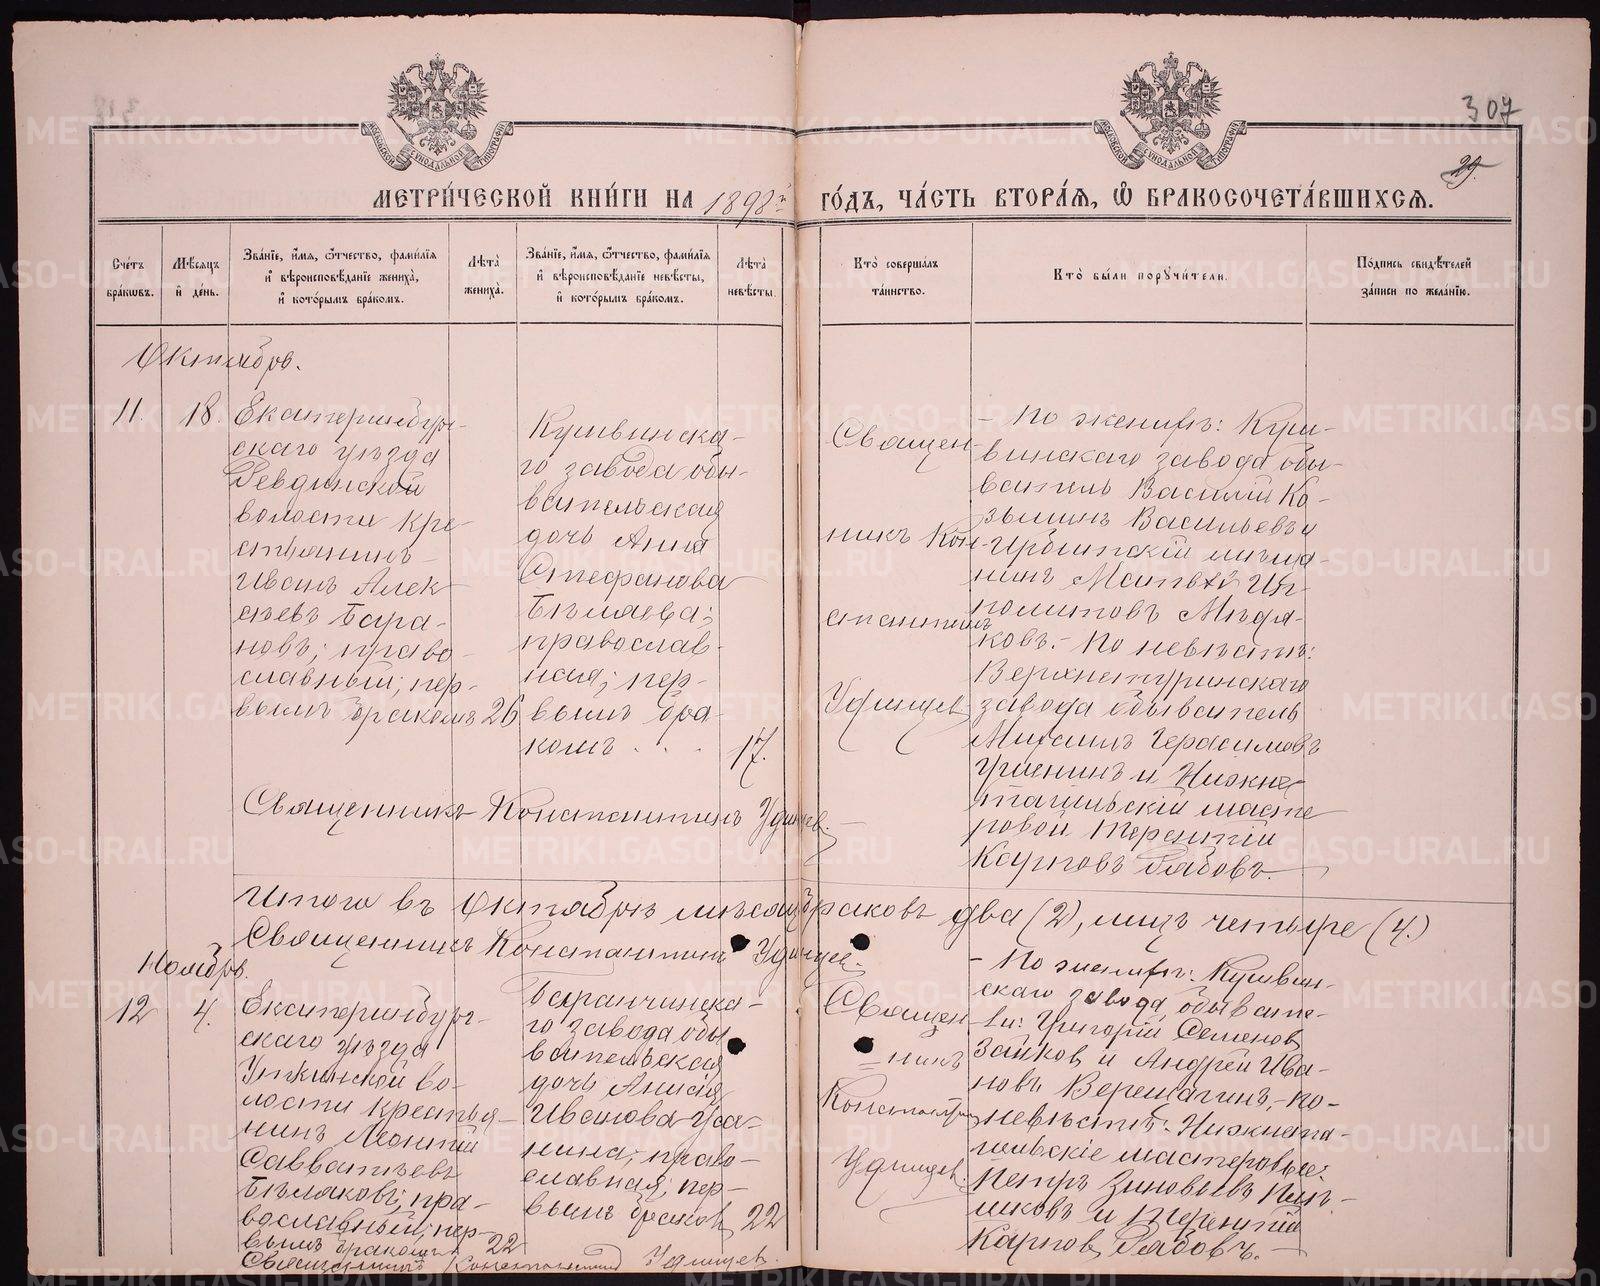 307
29.
МЕТРИ́ЧЕСКОЙ КНИ́ГИ НА 1898й ГО́ДЪ, ЧА́СТЬ ВТОРА́Я, Ѿ БРАКОСОЧЕТА́ВШИХСЯ.
Сче́тъ бра́кѡвъ.
Мѣ́сяцъ и҆ де́нь.
Зва́нїе, и҆́мя, ѻ҆́тчество, фами́лїя и҆ вѣроисповѣ́данїе жениха̀, и҆ кото́рымъ бра́комъ.
Лѣ́та жениха̀.
Зва́нїе, и҆́мя, ѻ҆́тчество, фами́лїя и҆ вѣроисповѣ́данїе невѣ́сты, и҆ кото́рымъ бра́комъ.
Лѣ́та невѣ́сты.
Кто̀ соверша́лъ та́инство.
Кто̀ бы́ли поручи́тели.
По́дпись свидѣ́телей за́писи по жела́нїю.
Октябрь.
11.
18.
Екатеринбург-
скаго уѣзда
Ревдинской
волости кре-
стьянинъ
Иванъ Алек-
сѣевъ Бара-
новъ; право-
славный; пер-
вымъ бракомъ
26
Кушвинска-
го завода обы-
вательская
дочь Анна
Стефанова
Бѣляева;
православ-
ная; пер-
вымъ бра-
комъ . . .
17.
Священ-
никъ Кон-
стантинъ
Удинцев
- По женихѣ: Куш-
винскаго завода обы-
ватель Василій Ко-
зьминъ Васильевъ и
Ирбитскій мѣща-
нинъ Матвѣй Ип-
политовъ Мѣдя-
ковъ.- По невѣстѣ:
Верхнетуринскаго
завода обыватель
Михаилъ Герасимовъ
и Нижне-
тагильскій масте-
ровой Терентій
Карповъ Рябовъ.-
Священникъ Константинъ Удинцев.-
Итого въ Октябрѣ мѣсяцѣ браковъ два (2), лицъ четыре (4.)
Священникъ Константинъ Удинцев.-
Ноябрь.
12
4.
Екатеринбург-
скаго уѣзда
Уткинской во-
лости крестья-
нинъ Леонтій
Савватѣевъ
Бѣляковъ; пра-
вославный; пер-
вымъ бракомъ
22
Баранчинска-
го завода обы-
вательская
дочь Анисія
Иванова Уса-
нина; право-
славная; пер-
вымъ браком
22
Священ-
никъ
Константин
Удинцев.
- По женихѣ: Кушвин-
скаго завода обывате-
ли: Григорій Семенов
Зайков и Андрей Ива-
новъ Верещагинъ,- по-
невѣстѣ: Нижнета-
гильскіе мастеровые:
Петръ Зиновьевъ
и Терентій
Карпов Рябовъ.-
Священникъ Константинъ Удинцев.
METRIKI.GASO-URAL.RU